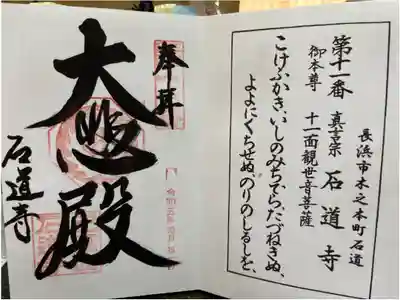 長浜市木之本町石道
第十一番 真言宗 石道寺
御本尊 十一面観世音菩薩
こけふかき、いしのみちでら、たづねきぬ、
よよにくちせぬ、のりのしるしを、
奉拝
大悲殿
石道寺